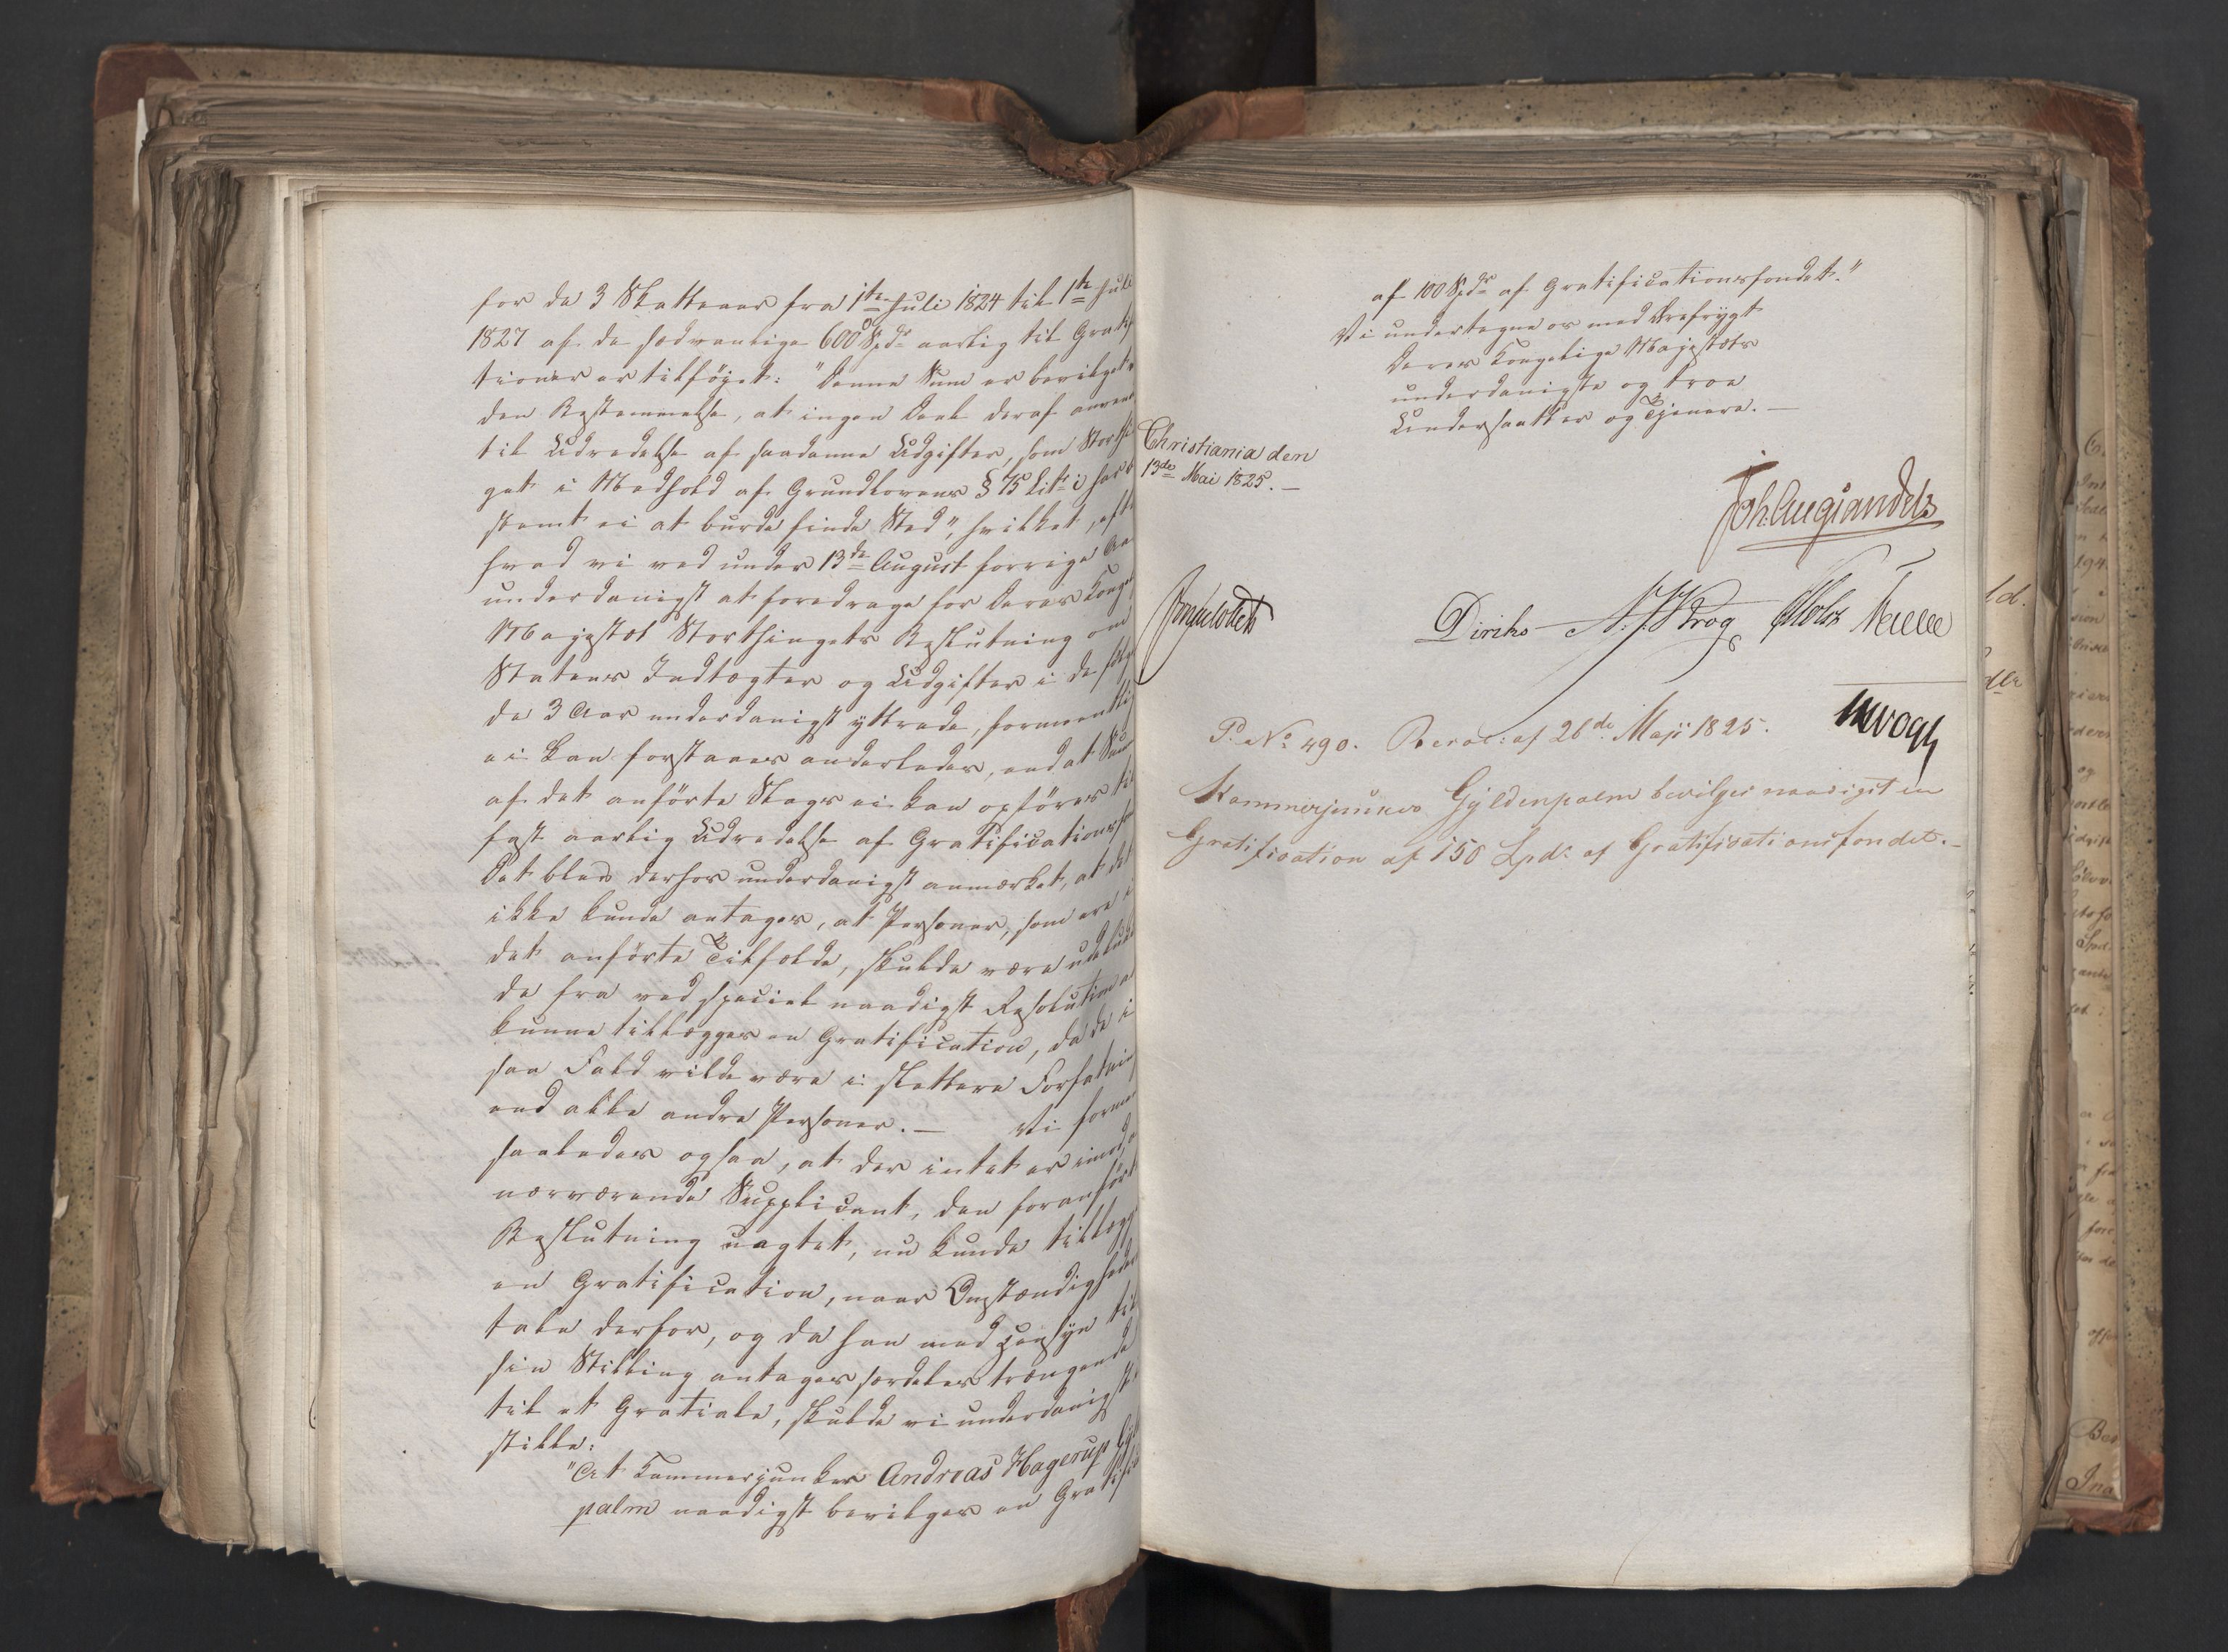 for de 3 Skatteaar fra 1ste Juli 1824 til 1ste Juli
1827 af de sædvanlige 6000 Spd. aarlig til Gratifi
tioner er tilföjet: "Denne Sum er bevilget
den Bestemmelse, at ingen Deel deraf anvend
til Udredelse af saadanne Udgifter, som Storthi
get i Medhold af Grundlovens § 75 Litr i har b
stemt ei at burde finde Sted", hvilket, eft
hvad vi ved under 13de August forrige Aa
underdanigst at foredrage for Deres Kongel
Majestæt Storthingets Beslutning om
Statens Indtægter og Udgifter i de fölg
de 3 Aar underdanigst yttrede, formeentli
ei kan forstaaes anderledes, end at Sum
af det anförte Slags ei kan opföres til
fast aarlig Udredelse af Gratificationsfo
Det blev derhos underdanigst anmærket, at det
ikke kunde antages, at Personer, som ere i
det anförte Tilfælde, skulde være udeluk
de fra ved speciel naadigst Resolution at
kunne tillægges en Gratification, da de i
saa Fald vilde være i slettere Forfatni
end alle andre Personer. — Vi forme
saaledes ogsaa, at der intet er imod, at
nærværende Supplicant, den foranfört
Beslutning uagtet, nu kunde tillægge
en Gratification, naar Omstændighede
tale derfor, og da han med Hensyn til
sin Stilling antages særdeles trængende
til et Gratiale, skulde vi underdanigst
stille:
"At Kammerjunker Andreas Hagerup Gyl
palm naadigst bevilges en Gratifi
af 100 Spd. af Gratificationsfondet."
Vi undertegne os med Ærefrygt
Deres Kongelige Majestæts
underdanigste og troe
Undersaatter og Tjenere. —
Christiania den
13de Mai 1825. —
Joh. Aug. Sandels
Diriks N. J. Krog Holst
P. No 490. Resol: af 26de Maji 1825.
Kammerjunker Gyldenpalm bevilges naadigst en
Gratification af 150 Spd. af Gratificationsfondet. —